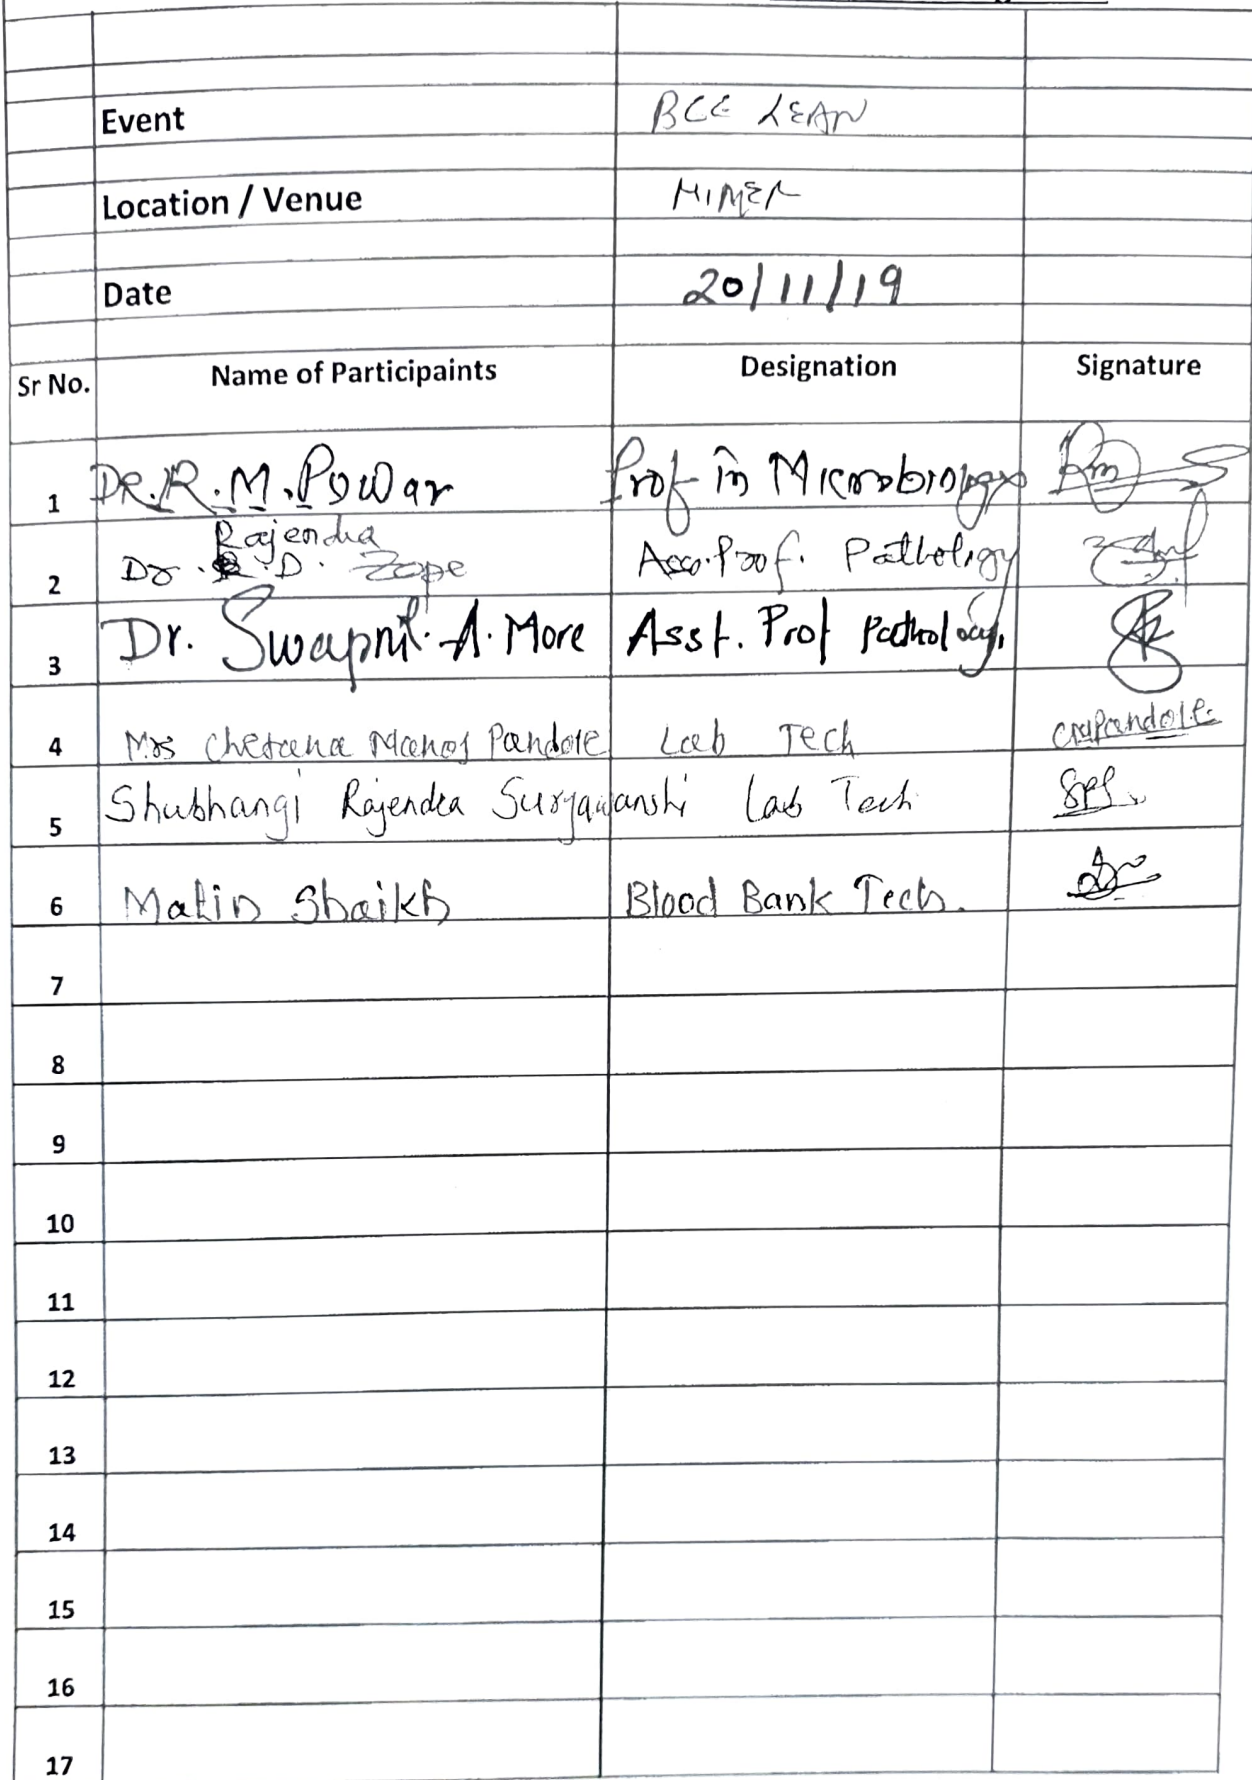 Event BCE LEAN
Location / Venue MIMER
Date 20/11/19
Sr No. Name of Participaints Designation Signature
1 DR. R. M. Powar Prof in Microbiology
Rajendra
2 Dr. D. Zope Asso. Prof. Pathology
3 Dr. Swapnil. A. More Asst. Prof Pathology
4 Mrs Chetana Manoj Pandore Lab Tech
5 Shubhangi Rajendra Suryawanshi Lab Tech
6 Matin Shaikh Blood Bank Tech.
7
8
9
10
11
12
13
14
15
16
17